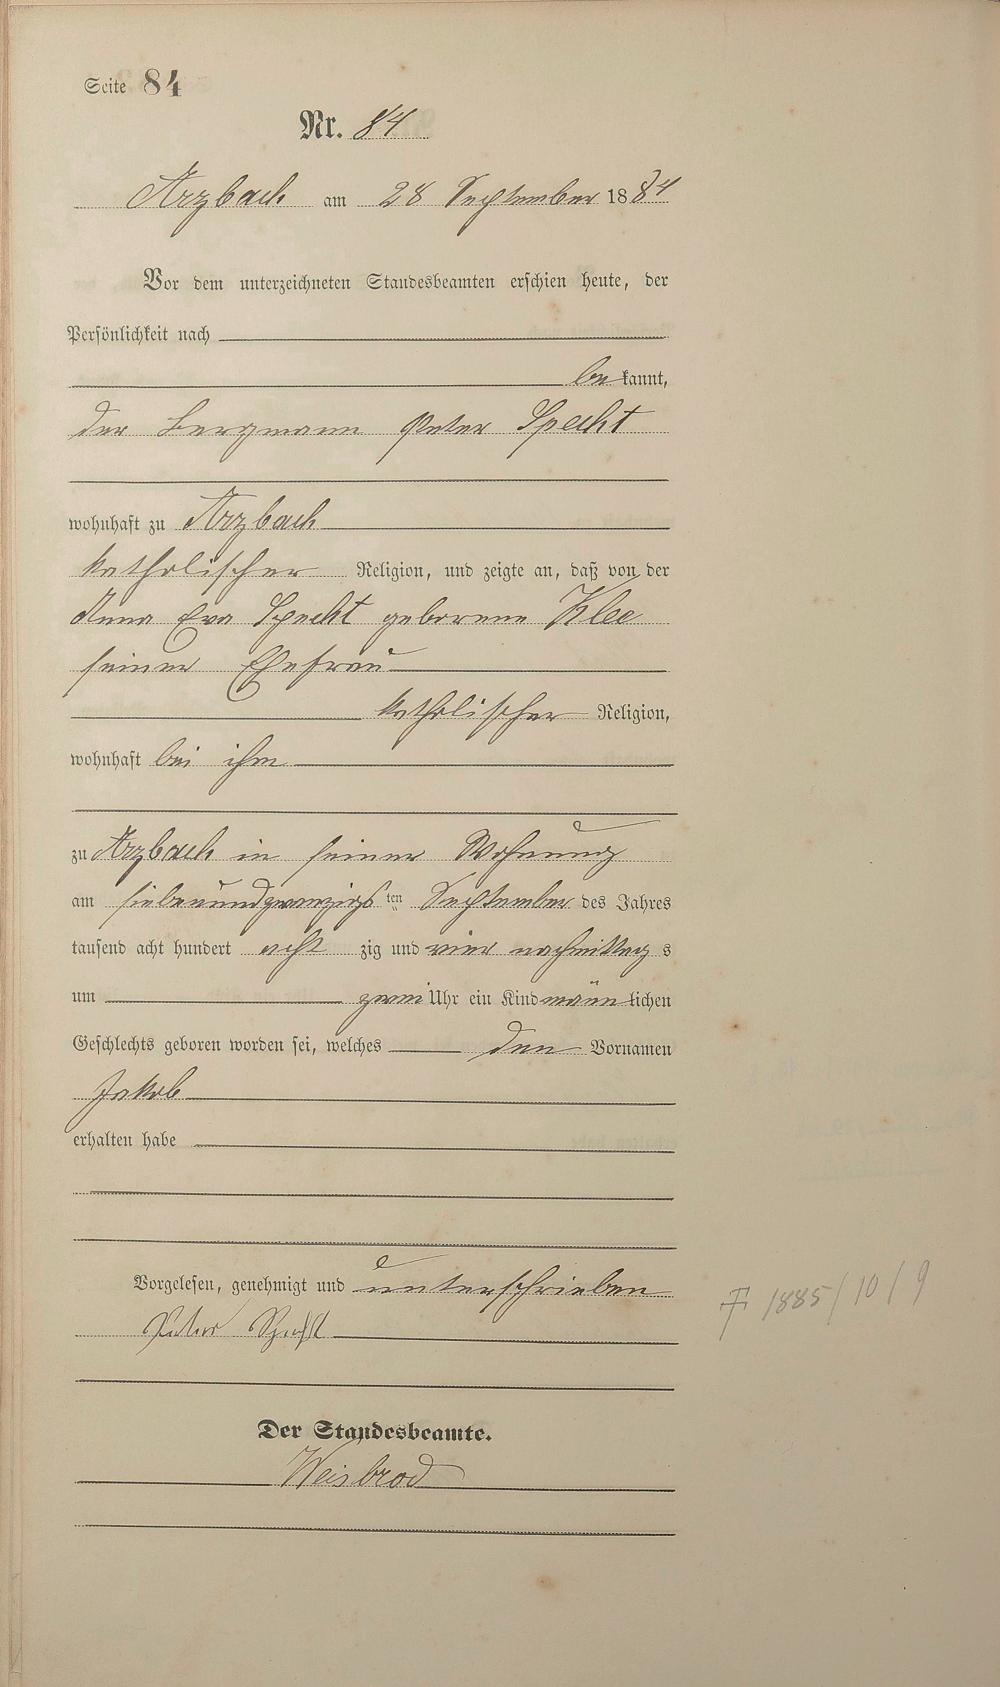 Seite 84
Nr. 84
Arzbach am 28 September 1884
Vor dem unterzeichneten Standesbeamten erschien heute, der
Persönlichkeit nach
bekannt,
der Bergmann Peter Specht
wohnhaft zu Arzbach
katholischer Religion, und zeigte an, daß von der
Anna Eva Specht geborene Klee
seiner Ehefrau
katholischer Religion,
wohnhaft bei ihm
zu Arzbach in seiner Wohnung
am siebenundzwanzigsten September des Jahres
tausend acht hundert achtzig und vier nachmittags
um zwei Uhr ein Kind männlichen
Geschlechts geboren worden sei, welches den Vornamen
Jakob
erhalten habe
Vorgelesen, genehmigt und unterschrieben
Peter Specht
Der Standesbeamte.
Weisbrod
† 1885/10/9